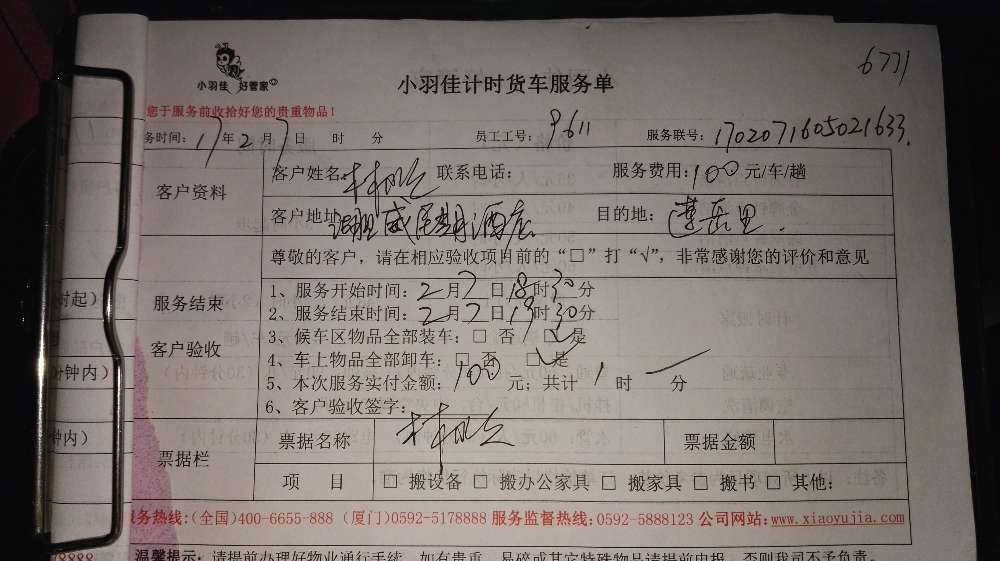 小羽佳 好管家
小羽佳计时货车服务单
6771
您于服务前收拾好您的贵重物品！
务时间：17年2月7日 时 分 员工工号：9611 服务联号：1702071605021633
客户资料
客户姓名： 联系电话： 服务费用：100元/车/趟
客户地址： 酒店 目的地：莲岳里
服务结束
客户验收
尊敬的客户，请在相应验收项目前的“□”打“√”，非常感谢您的评价和意见
1、服务开始时间：2月7日18时30分
2、服务结束时间：2月7日19时30分
3、候车区物品全部装车：□ 否 □ 是
4、车上物品全部卸车：□ 否 □ 是
5、本次服务实付金额：100元；共计1时一分
6、客户验收签字：
票据栏
票据名称 票据金额
项 目 □ 搬设备 □ 搬办公家具 □ 搬家具 □ 搬书 □ 其他：
服务热线:(全国)400-6655-888 (厦门)0592-5178888 服务监督热线:0592-5888123 公司网站:www.xiaoyujia.com
温馨提示：请提前办理好物业通行手续，如有贵重、易碎或其它特殊物品请提前申报，否则我司不予负责。
时起）
分钟内）
钟内）